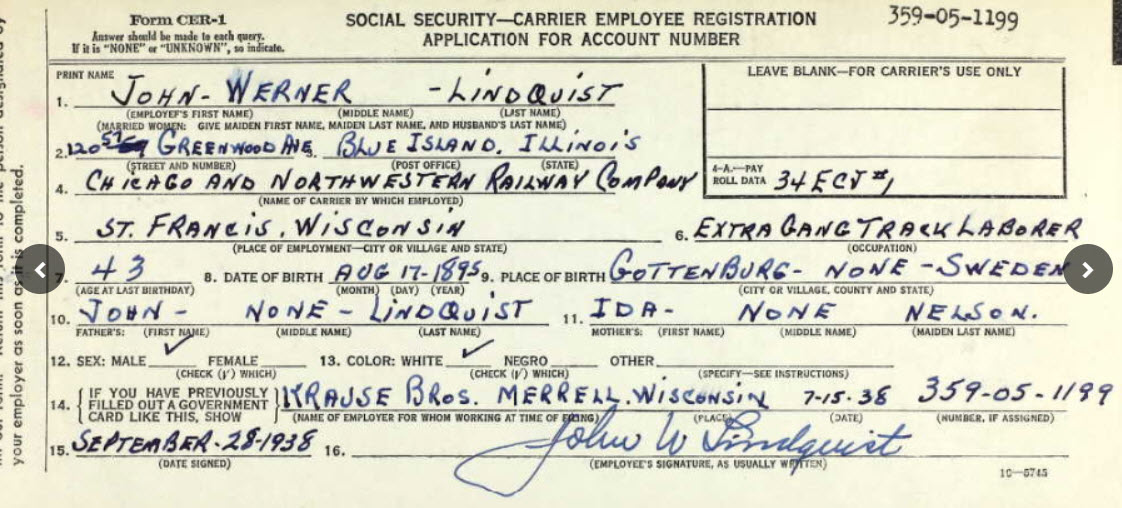 Form CER-1
Answer should be made to each query.
If it is "NONE" or "UNKNOWN", so indicate.
SOCIAL SECURITY—CARRIER EMPLOYEE REGISTRATION
APPLICATION FOR ACCOUNT NUMBER
359-05-1199
LEAVE BLANK—FOR CARRIER'S USE ONLY
4-A.—PAY
ROLL DATA 34 ECJ #1
PRINT NAME
1. JOHN- WERNER -LINDQUIST
(EMPLOYEE'S FIRST NAME) (MIDDLE NAME) (LAST NAME)
(MARRIED WOMEN: GIVE MAIDEN FIRST NAME, MAIDEN LAST NAME, AND HUSBAND'S LAST NAME)
2. 120 ST GREENWOOD AVE 3. BLUE ISLAND. ILLINOIS
(STREET AND NUMBER) (POST OFFICE) (STATE)
4. CHICAGO AND NORTHWESTERN RAILWAY COMPANY
(NAME OF CARRIER BY WHICH EMPLOYED)
5. ST. FRANCIS. WISCONSIN 6. EXTRA GANG TRACK LABORER
(PLACE OF EMPLOYMENT—CITY OR VILLAGE AND STATE) (OCCUPATION)
7. 43 8. DATE OF BIRTH AUG 17-1895 9. PLACE OF BIRTH GOTTENBURG- NONE -SWEDEN
(AGE AT LAST BIRTHDAY) (MONTH) (DAY) (YEAR) (CITY OR VILLAGE, COUNTY AND STATE)
10. JOHN- NONE- LINDQUIST 11. IDA- NONE NELSON.
FATHER'S: (FIRST NAME) (MIDDLE NAME) (LAST NAME) MOTHER'S: (FIRST NAME) (MIDDLE NAME) (MAIDEN LAST NAME)
12. SEX: MALE ✓ FEMALE 13. COLOR: WHITE ✓ NEGRO OTHER
(CHECK (√) WHICH) (CHECK (√) WHICH) (SPECIFY—SEE INSTRUCTIONS)
14. { IF YOU HAVE PREVIOUSLY FILLED OUT A GOVERNMENT CARD LIKE THIS, SHOW } KRAUSE BROS. MERRELL. WISCONSIN 7-15-38 359-05-1199
(NAME OF EMPLOYER FOR WHOM WORKING AT TIME OF FILING) (PLACE) (DATE) (NUMBER, IF ASSIGNED)
15. SEPTEMBER-28-1938 16. John W Lindquist
(DATE SIGNED) (EMPLOYEE'S SIGNATURE, AS USUALLY WRITTEN)
16—5745
your employer as soon as it is completed.